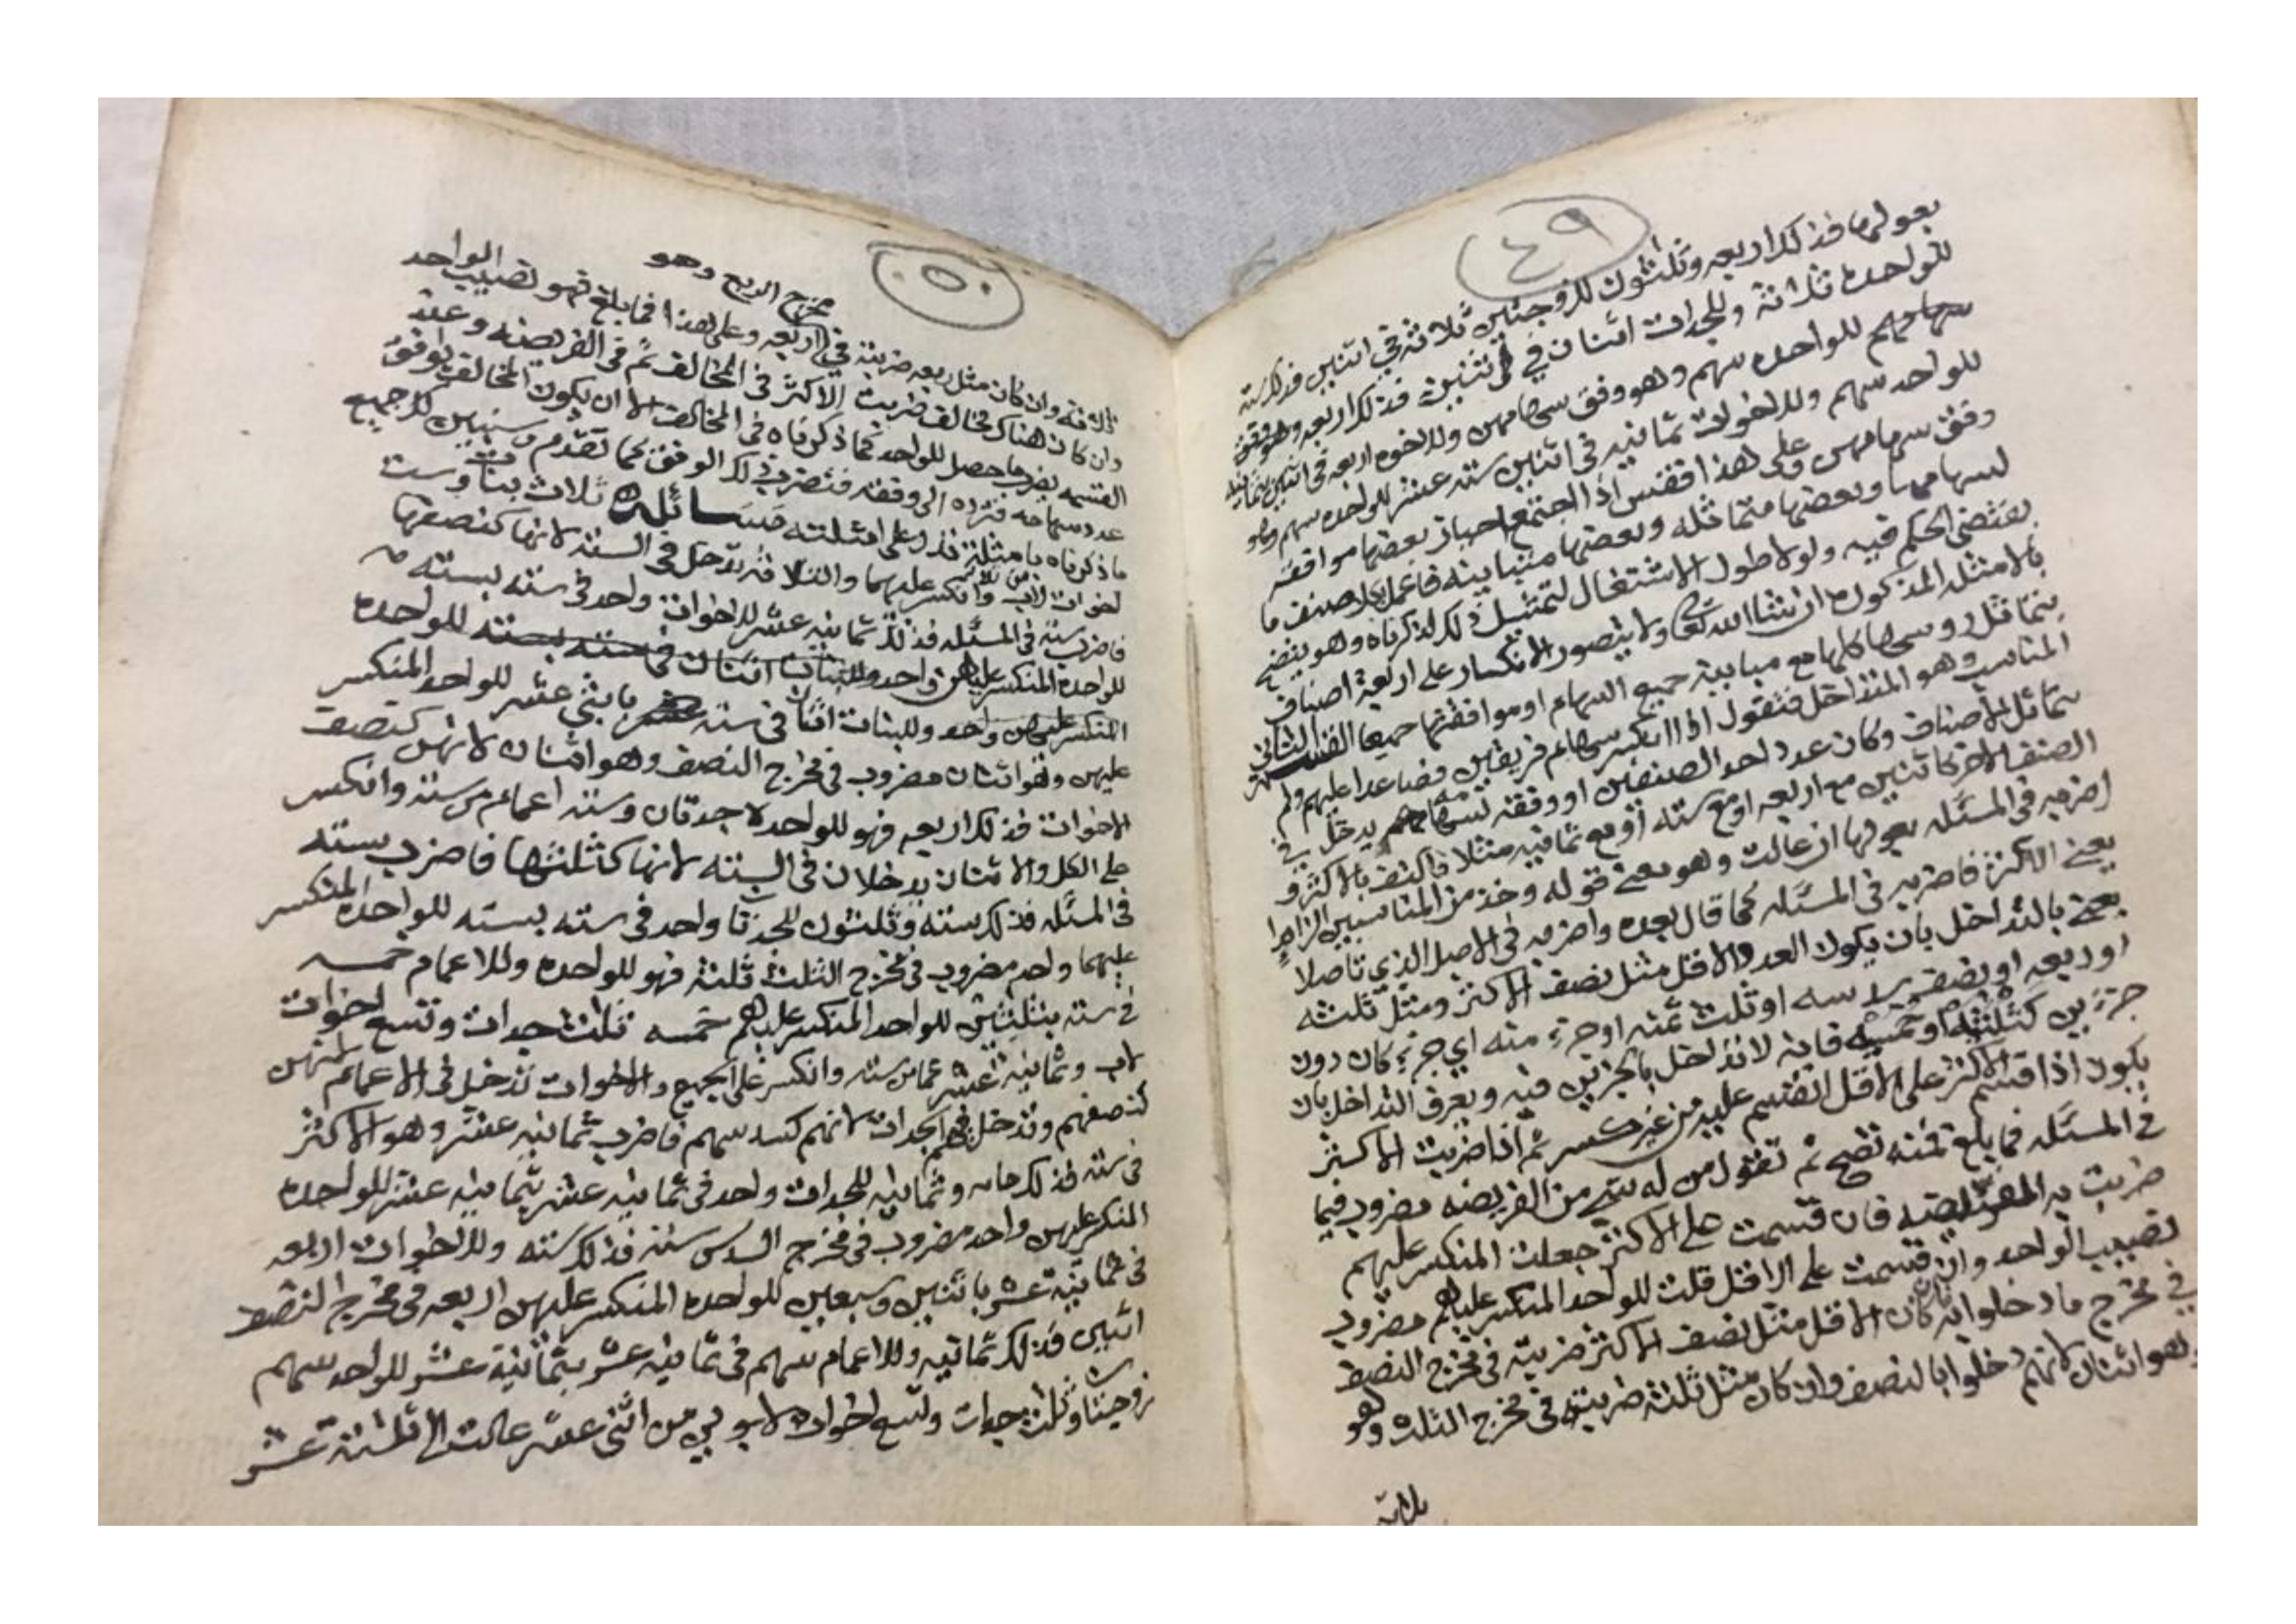 ٤٩
بعولها فذلك اربعه وثلثون للزوجتين ثلاثة في اثنين فذلك سته
للواحده ثلاثة وللجدات اثنان في اثنين فذلك اربعه وهو وفق
سهامهم للواحده سهم وهو وفق سهامهن وللاخوه اربعه في اثنين بثمانيه
للواحد سهم وللاخوات ثمانيه في اثنين سته عشر للواحده سهم وهو
وفق سهامهن وعلى هذا فقس اذا اجتمع احياز بعضها موافقه
لسهامها وبعضها متماثله وبعضها متباينه فاعمل بكل صنف ما
يقتضي الحكم فيه ولولا طول الاشتغال لتمثيل ذلك لذكرناه وهو يتضح
بالامثله المذكوره ان شا الله تعالى ولا يتصور الانكسار على اربعة اصناف
بتماثل روسها كلها مع مباينة جميع السهام او موافقتها جميعا القسم الثاني
المناسب وهو المتداخل فنقول اذا انكسر سهام فريقين فصاعدا عليهم ولم
تتماثل الاصناف وكان عدد احد الصنفين او وفقه لسهامهم يدخل في
الصنف الاخر كاثنين مع اربعه او مع سته او مع ثمانيه مثلا فاكتف بالاكثر و
اضربه في المسئله بعولها ان عالت وهو معنى قوله وخذ من المناسبين الزايدا
يعني الاكثر فاضربه في المسئله كما قال بعده واضربه في الاصل الذي تاصلا
يعني بالتداخل بان يكون العدد الاقل مثل نصف الاكثر ومثل ثلثه
او ربعه او نصف سدسه او ثلث ثمنه او جزء منه اي جزء كان دون
جزءين كثلثيه او خمسيه فانه لا تداخل بالجزئين فيه ويعرف التداخل بان
يكون اذا قسم الاكثر على الاقل انقسم عليه من غير كسر ثم اذا ضربت الاكثر
في المسئله فما بلغ فمنه تصح ثم تقول من له شي من الفريضه مضروب فيما
ضربت به الفريضه فان قسمت على الاكثر جعلت المنكسر عليهم
نصيب الواحد وان قسمت على الاقل قلت للواحد المنكسر عليهم مضروب
في مخرج ما دخلوا به فان كان الاقل مثل نصف الاكثر ضربته في مخرج النصف
وهو اثنان لانهم دخلوا بالنصف وان كان مثل ثلثه ضربته في مخرج الثلث وهو
ثلاثة
٥٠
ثلاثة وان كان مثل ربعه ضربته في مخرج الربع وهو
اربعه وعلى هذا فما بلغ فهو نصيب الواحد
وان كان هناك مخالف ضربت الاكثر في المخالف ثم في الفريضه وعند
القسمه يضرب ما حصل للواحد كما ذكرناه في المخالف الا ان يكون المخالف يوافق
عدد سهامه فترده الى وفقه فتضرب ذلك الوفق كما تقدم
ما ذكرناه بامثلة فذلك على امثلته مسائله ثلاث بنات وست
اخوات لاب وانكسر عليهما والثلاثة تدخل في السته لانها كنصفها
فاضرب سته في المسئله فذلك ثمانيه عشر للاخوات واحد في سته بسته
للواحده المنكسر عليهن واحد وللبنات اثنان في سته بسته للواحده
المنكسر عليهن واحد وللبنات اثنان في سته باثني عشر للواحد المنكسر
عليهن وهو اثنان مضروب في مخرج النصف وهو اثنان لانهن كنصف
الاخوات فذلك اربعه فهو للواحده جدتان وسته اعمام من سته وانكسر
على الكل والاثنان يدخلان في السته لانها كثلثها فاضرب سته
في المسئله فذلك سته وثلثون للجدتان واحد في سته بسته للواحده المنكسر
عليهما واحد مضروب في مخرج الثلث ثلثة فهو للواحده وللاعمام خمسه
في سته بثلثين للواحد المنكسر عليهم خمسه ثلث جدات وتسع اخوات
لاب وثمانية عشر عما من سته وانكسر على الجميع والاخوات تدخل في الاعمام لانهن
كنصفهم وتدخل فيهم الجدات لانهم كسدسهم فاضرب ثمانيه عشر وهو الاكثر
في سته فذلك مايه وثمانيه للجدات واحد في ثمانيه عشر بثمانيه عشر للواحده
المنكسر عليهن واحد مضروب في مخرج السدس سته فذلك سته وللاخوات اربعه
في ثمانية عشر باثنين وسبعين للواحده المنكسر عليهن اربعه في مخرج النصف
اثنين فذلك ثمانيه وللاعمام سهم في ثمانيه عشر بثمانية عشر للواحد سهم
زوجتان وثلث جدات وتسع اخوات لابوين من اثني عشر عالت الى ثلثة عشر